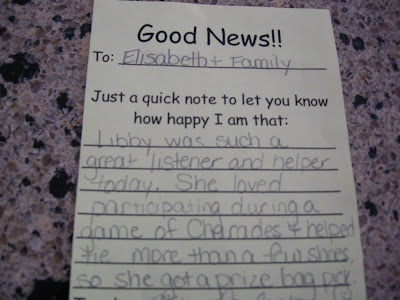 Good News!!
To: Elisabeth + Family
Just a quick note to let you know
how happy I am that:
Libby was such a
great listener and helper
today. She loved
participating during a
game of Charades + helped
tie more than a few shoes,
so she got a prize bag pick.